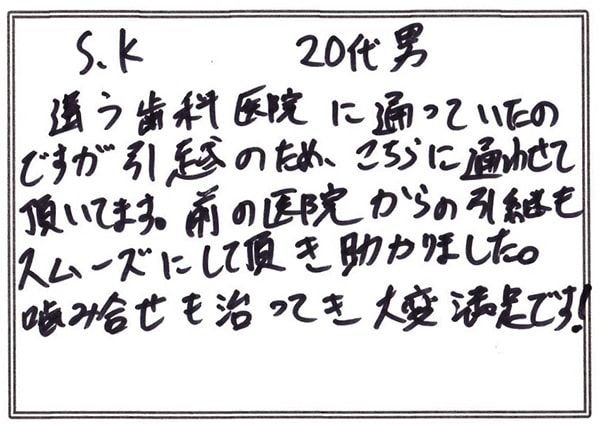 S.K 20代男
違う歯科医院に通っていたの
ですが引越のため、こちらに通わせて
頂いてます。前の医院からの引継も
スムーズにして頂き助かりました。
噛み合せも治ってき大変満足です!